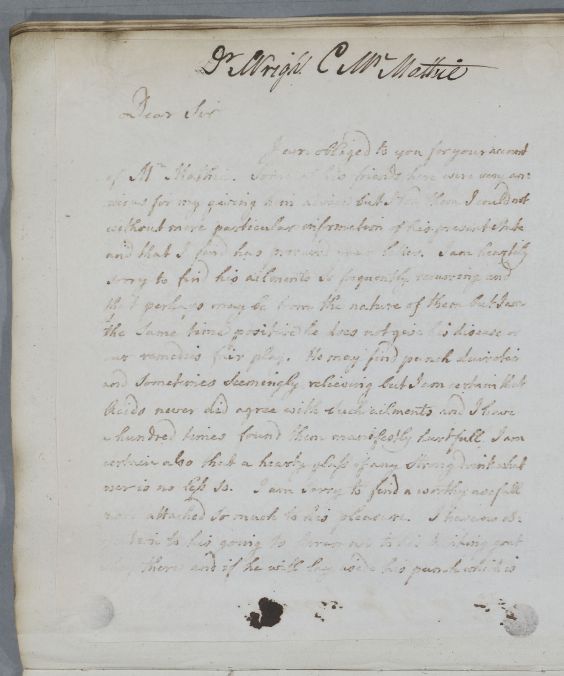 Dr. Wright. C Mr. Mathie
Dear Sir
I am obliged to you for your account
of Mr. Mathie. Some of his friends here were very an
xious for my giving him advice but I told them I could not
without more particular information of his present state
and that I find has I am heartily
sorry to find his ailments so frequently recurring and
that perhaps may be from the nature of them but I am at
the same time positive he does not give his disease or
our remedies fair play. He may find punch
and sometimes seemingly relieving but I am certain that
Acids never did agree with such ailments and I have
a hundred times found them manifestly hurtfull. I am
certain also that a hearty glass of any strong drink what
ever is no less so. I am sorry to find a worthy usefull
man attached so much to his pleasure. I have no ob-
jection to his going to goat
whey there and if he will lay aside his punch which is